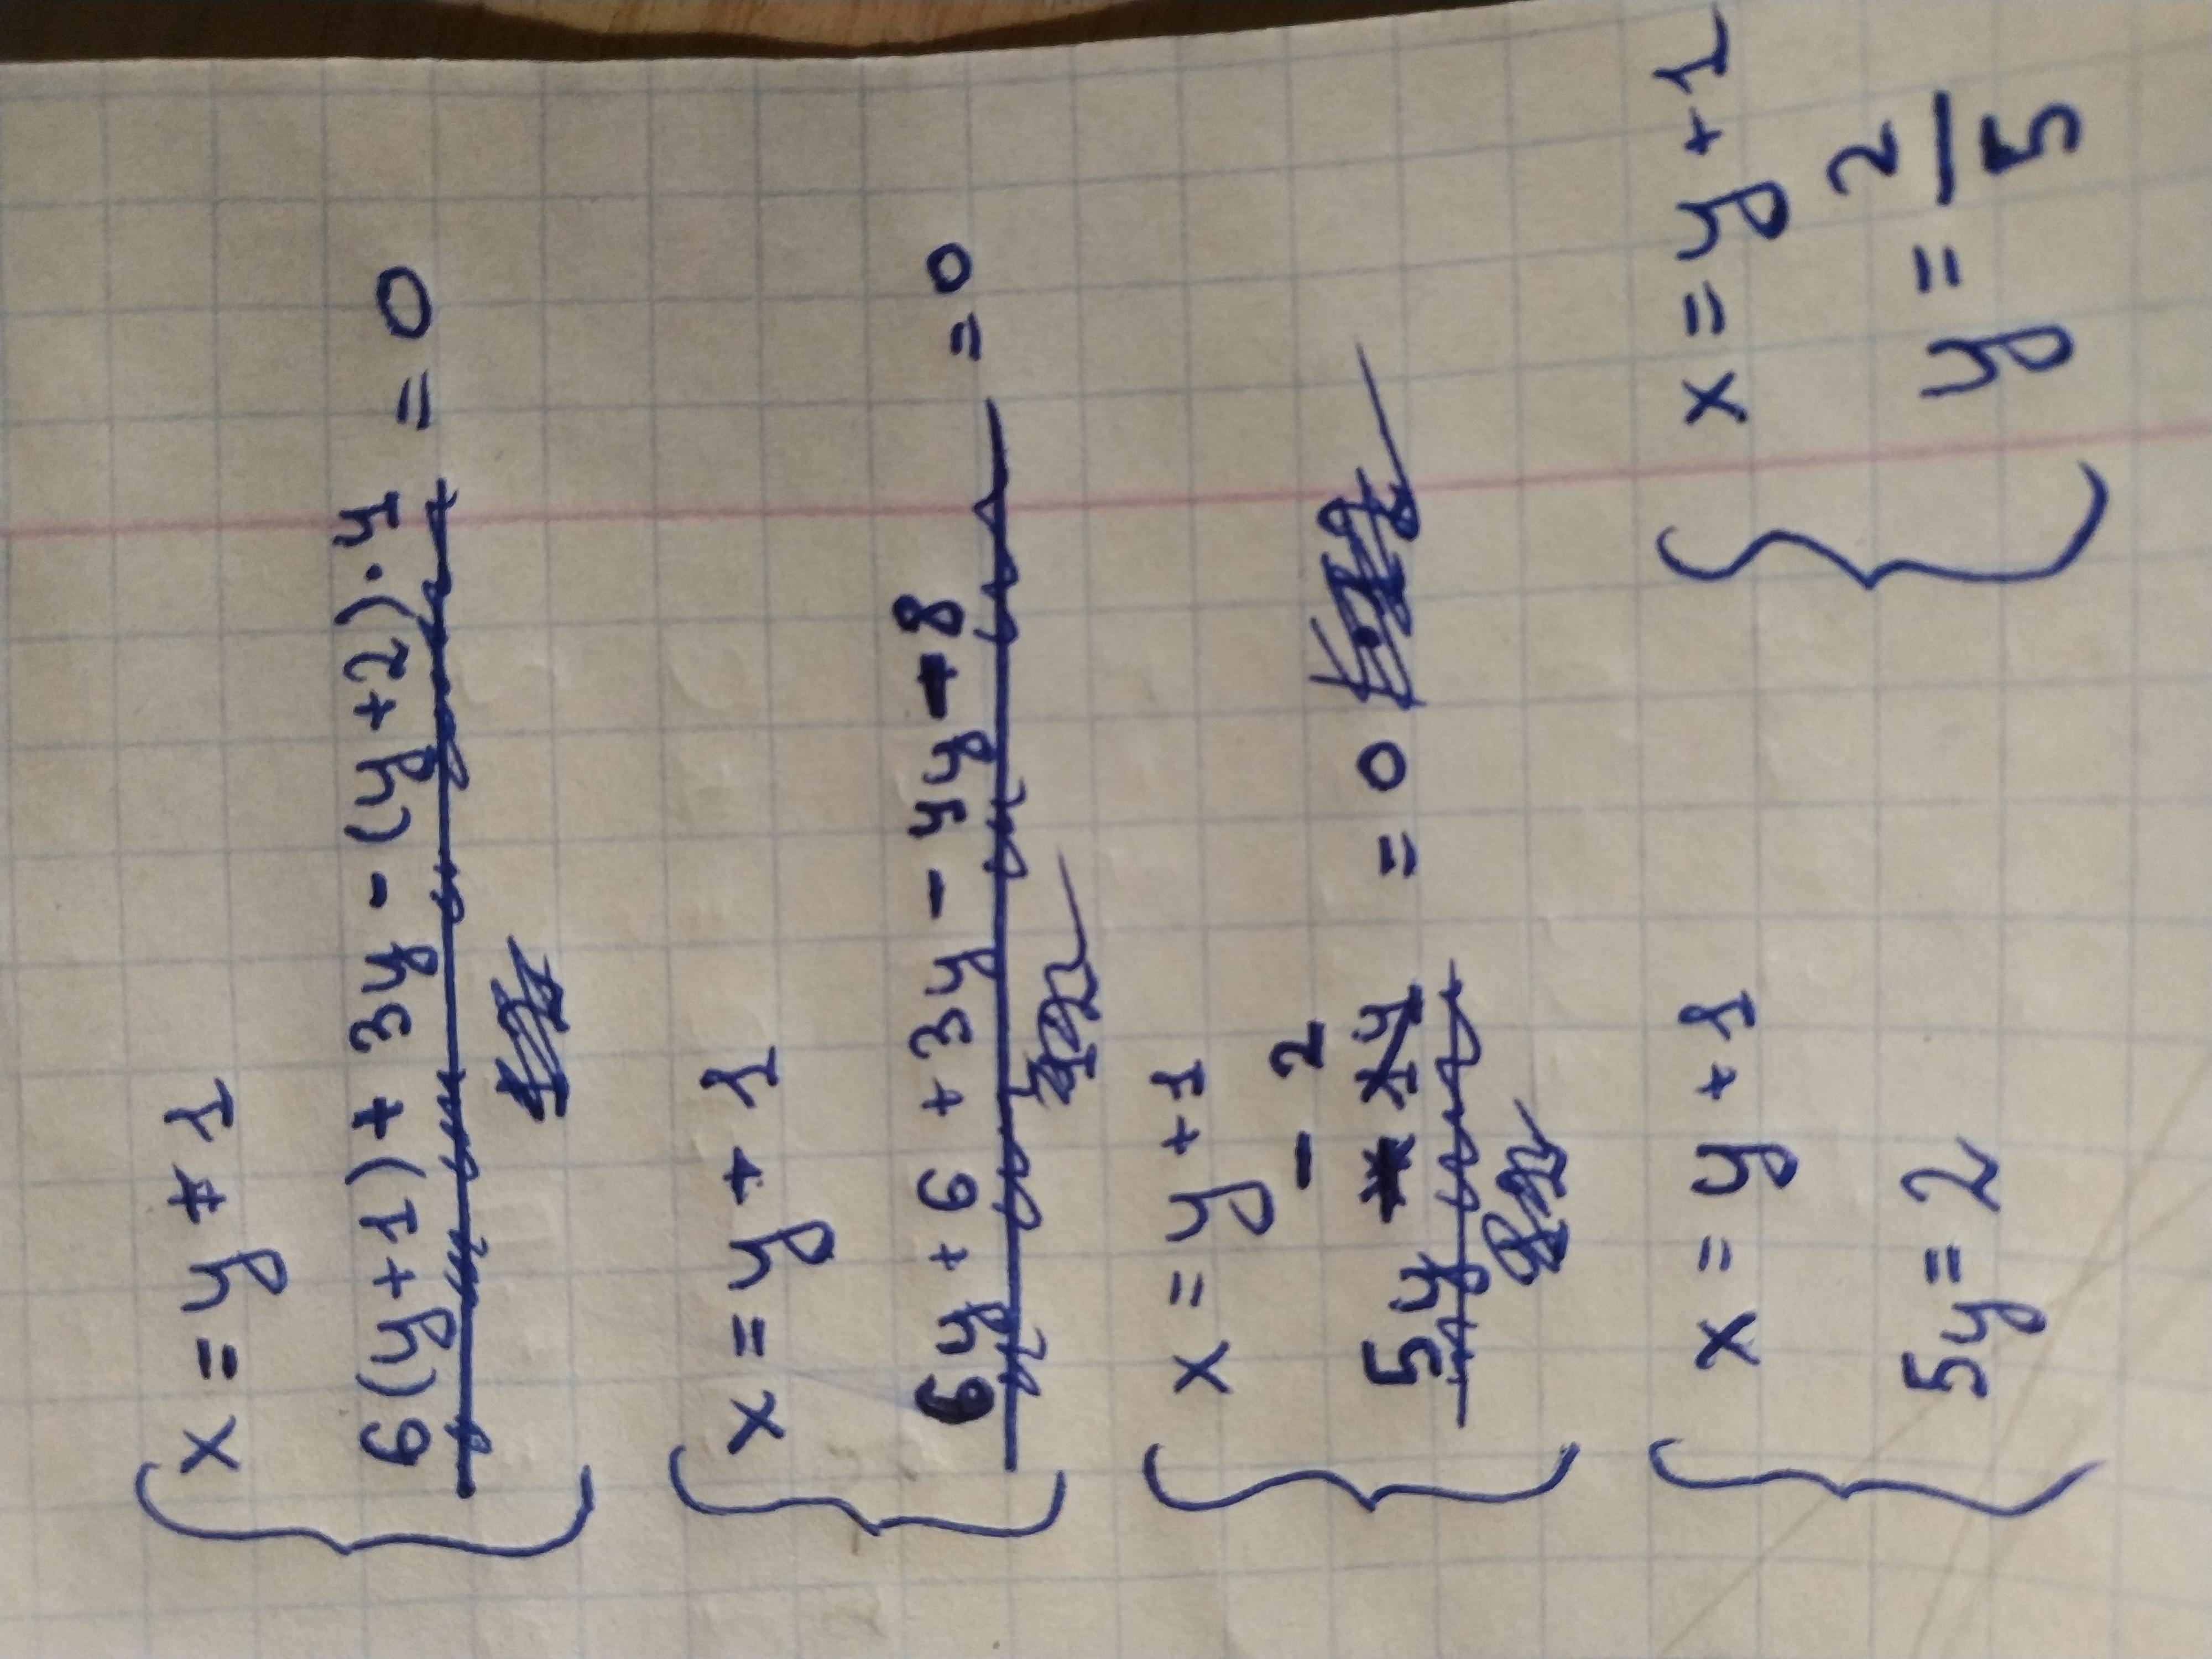 x = y + 1
6(y+1) + 3y - (y+2)·4 = 0
x = y + 1
6y + 6 + 3y - 4y - 8 = 0
x = y + 1
5y - 2 = 0
x = y + 1
5y = 2
x = y + 1
y = 2/5